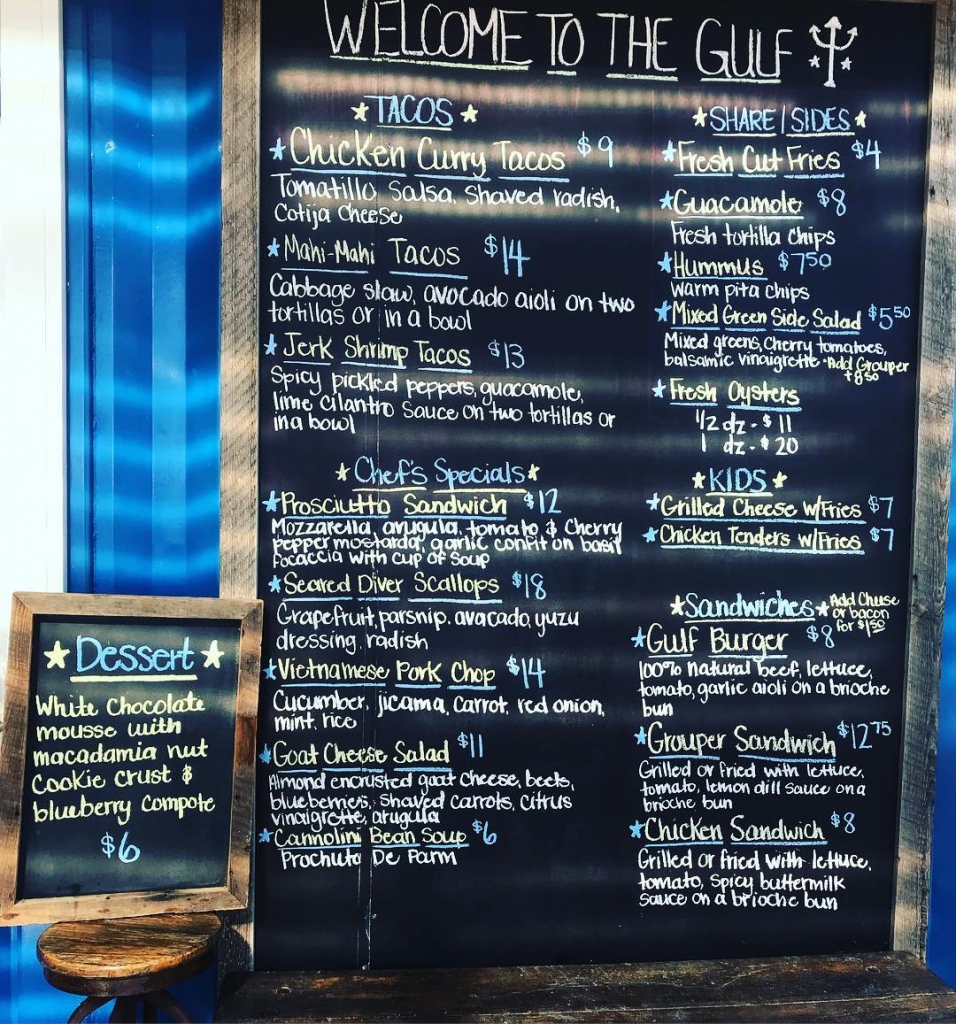 WELCOME TO THE GULF
TACOS
Chicken Curry Tacos $9
Tomatillo Salsa, Shaved radish,
Cotija Cheese
Mahi-Mahi Tacos $14
Cabbage slaw, avocado aioli on two
tortillas or in a bowl
Jerk Shrimp Tacos $13
Spicy pickled peppers, guacamole,
lime cilantro sauce on two tortillas or
in a bowl
Chef's Specials
Prosciutto Sandwich $12
Mozzarella, arugula, tomato & Cherry
pepper mostarda, garlic confit on basil
focaccia with cup of soup
Seared Diver Scallops $18
Grapefruit, parsnip, avocado, yuzu
dressing, radish
Vietnamese Pork Chop $14
Cucumber, jicama, carrot, red onion,
mint, rice
Goat Cheese Salad $11
Almond encrusted goat cheese, beets,
blueberries, shaved carrots, citrus
vinaigrette, arugula
Cannolini Bean Soup $6
Prochuto De Parm
SHARE/SIDES
Fresh Cut Fries $4
Guacamole $8
Fresh tortilla chips
Hummus $7.50
Warm pita chips
Mixed Green Side Salad $5.50
Mixed greens, Cherry tomatoes,
balsamic vinaigrette • Add Grouper
+8.50
Fresh Oysters
1/2 dz - $11
1 dz - $20
KIDS
Grilled Cheese w/Fries $7
Chicken Tenders w/Fries $7
Sandwiches Add Cheese
or bacon
for $1.50
Gulf Burger $8
100% natural beef, lettuce,
tomato, garlic aioli on a brioche
bun
Grouper Sandwich $12.75
Grilled or fried with lettuce,
tomato, lemon dill sauce on a
brioche bun
Chicken Sandwich $8
Grilled or fried with lettuce,
tomato, spicy buttermilk
sauce on a brioche bun
Dessert
White Chocolate
mousse with
macadamia nut
Cookie crust &
blueberry compote
$6